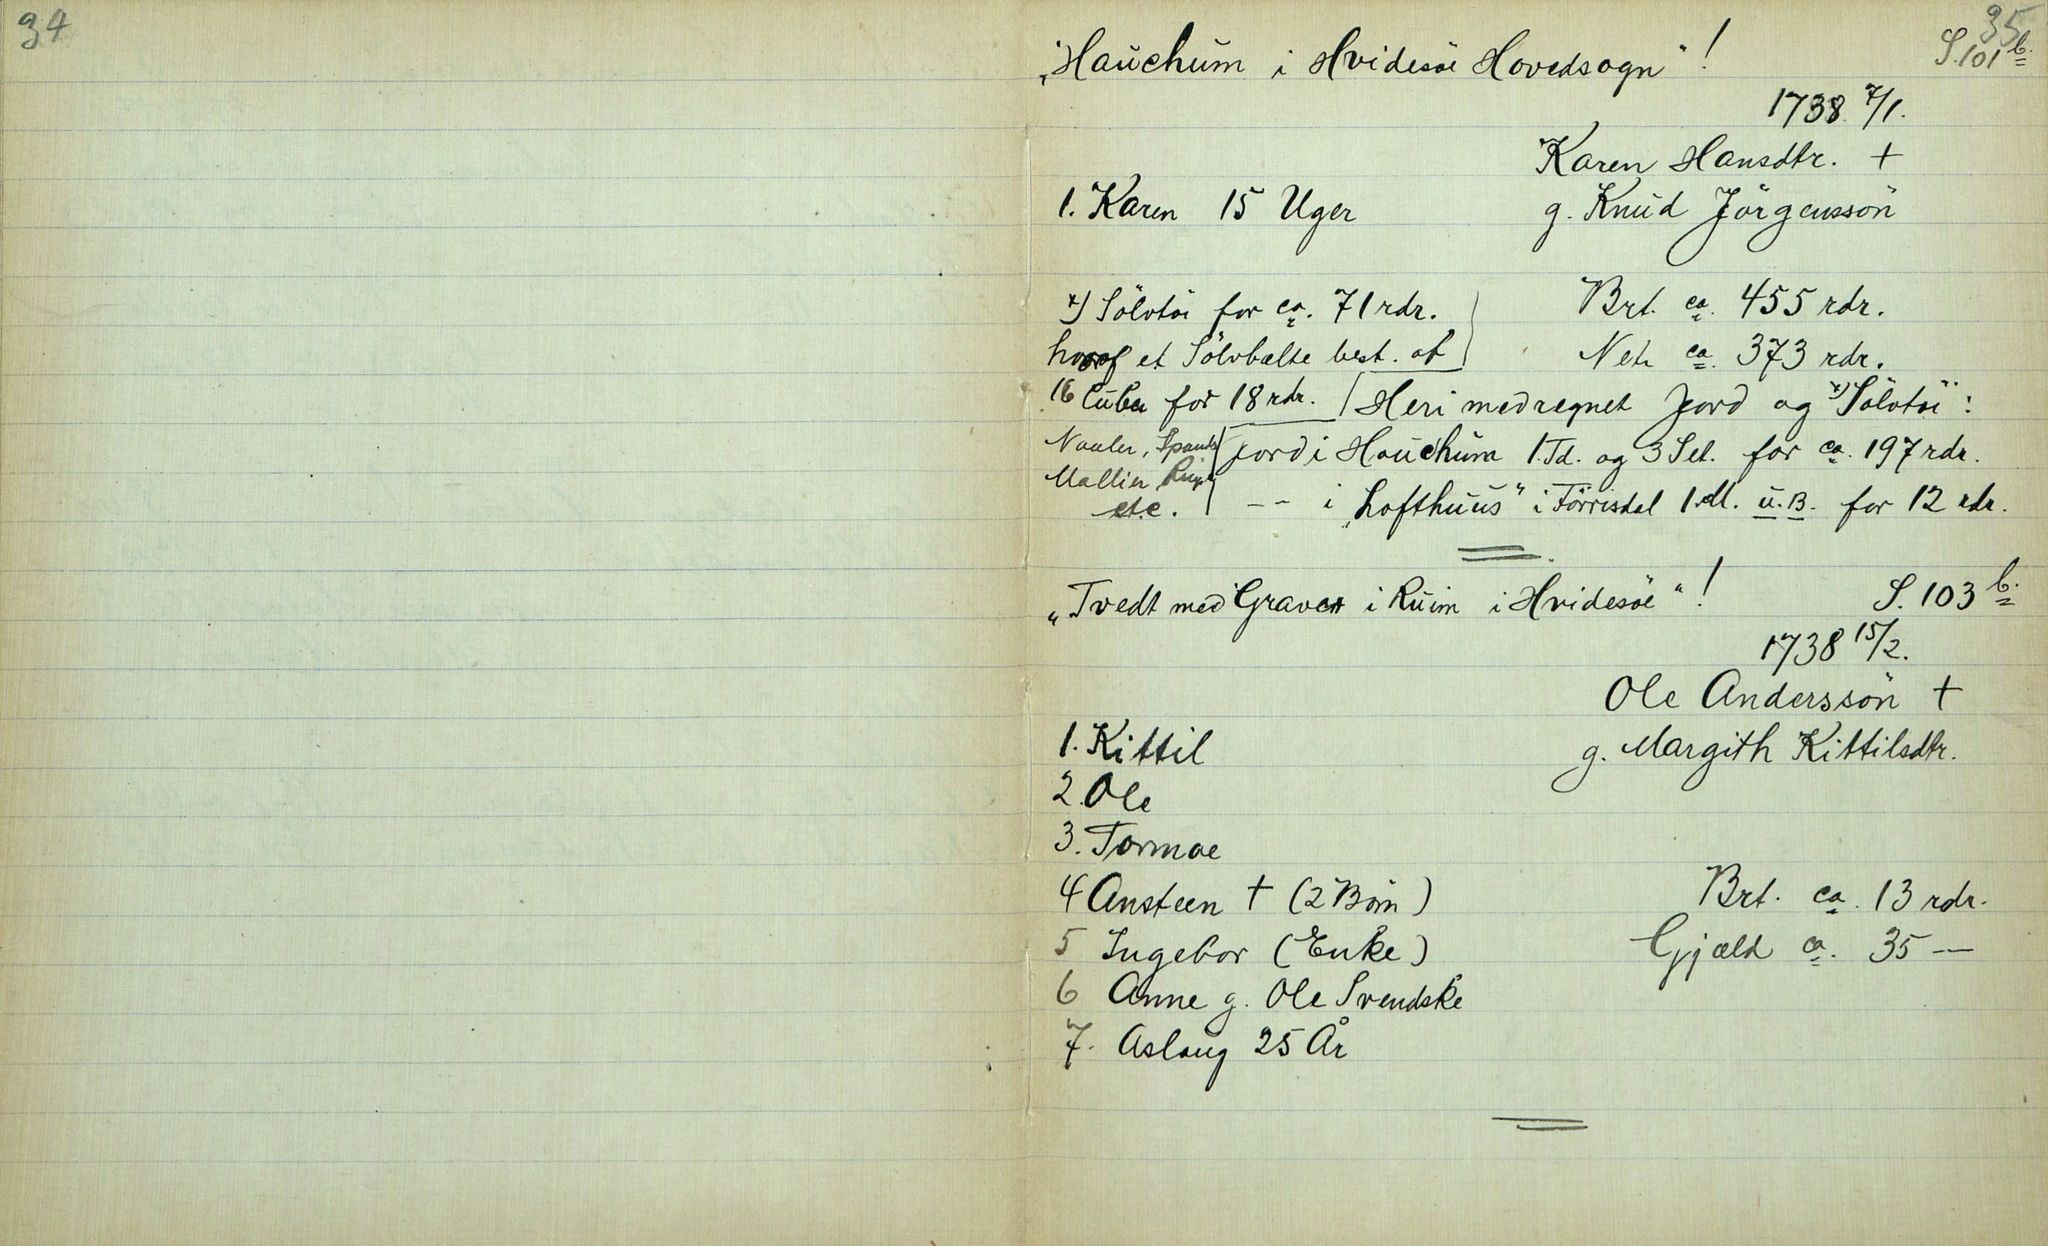 34
35
„Hauchum i Hvidesöe Hovedsogn“!
S. 101 b.
1738 7/1.
Karen Hansdtr. +
1. Karen 15 Uger
g. Knud Jörgenssön
x) Sölvtöi for ca. 71 rdr.
Brt. ca. 455 rdr.
hvoraf et Sölvbælte best. af
Net. ca. 373 rdr.
16 for 18 rdr.
Heri medregnet Jord og x) Sölvtöi:
Naaler,
Jord i Hauchum 1 Td. og 3 Set. for ca. 197 rdr.
Mallier
etc.
-- i „Lofthuus“ i Förrisdal 1 M. u. B. for 12 rdr.
„Tvedt med Graven i Ruim i Hvidesöe“!
S. 103 b.
1738 15/2.
Ole Anderssön +
1. Kittil
g. Margith Kittilsdtr.
2. Ole
3. Tormoe
4 Ansteen + (2 Börn)
Brt. ca. 13 rdr.
5 Ingebor (Enke)
Gjæld ca. 35 —
6 Anne g. Ole Svendske
7. Aslaug 25 År